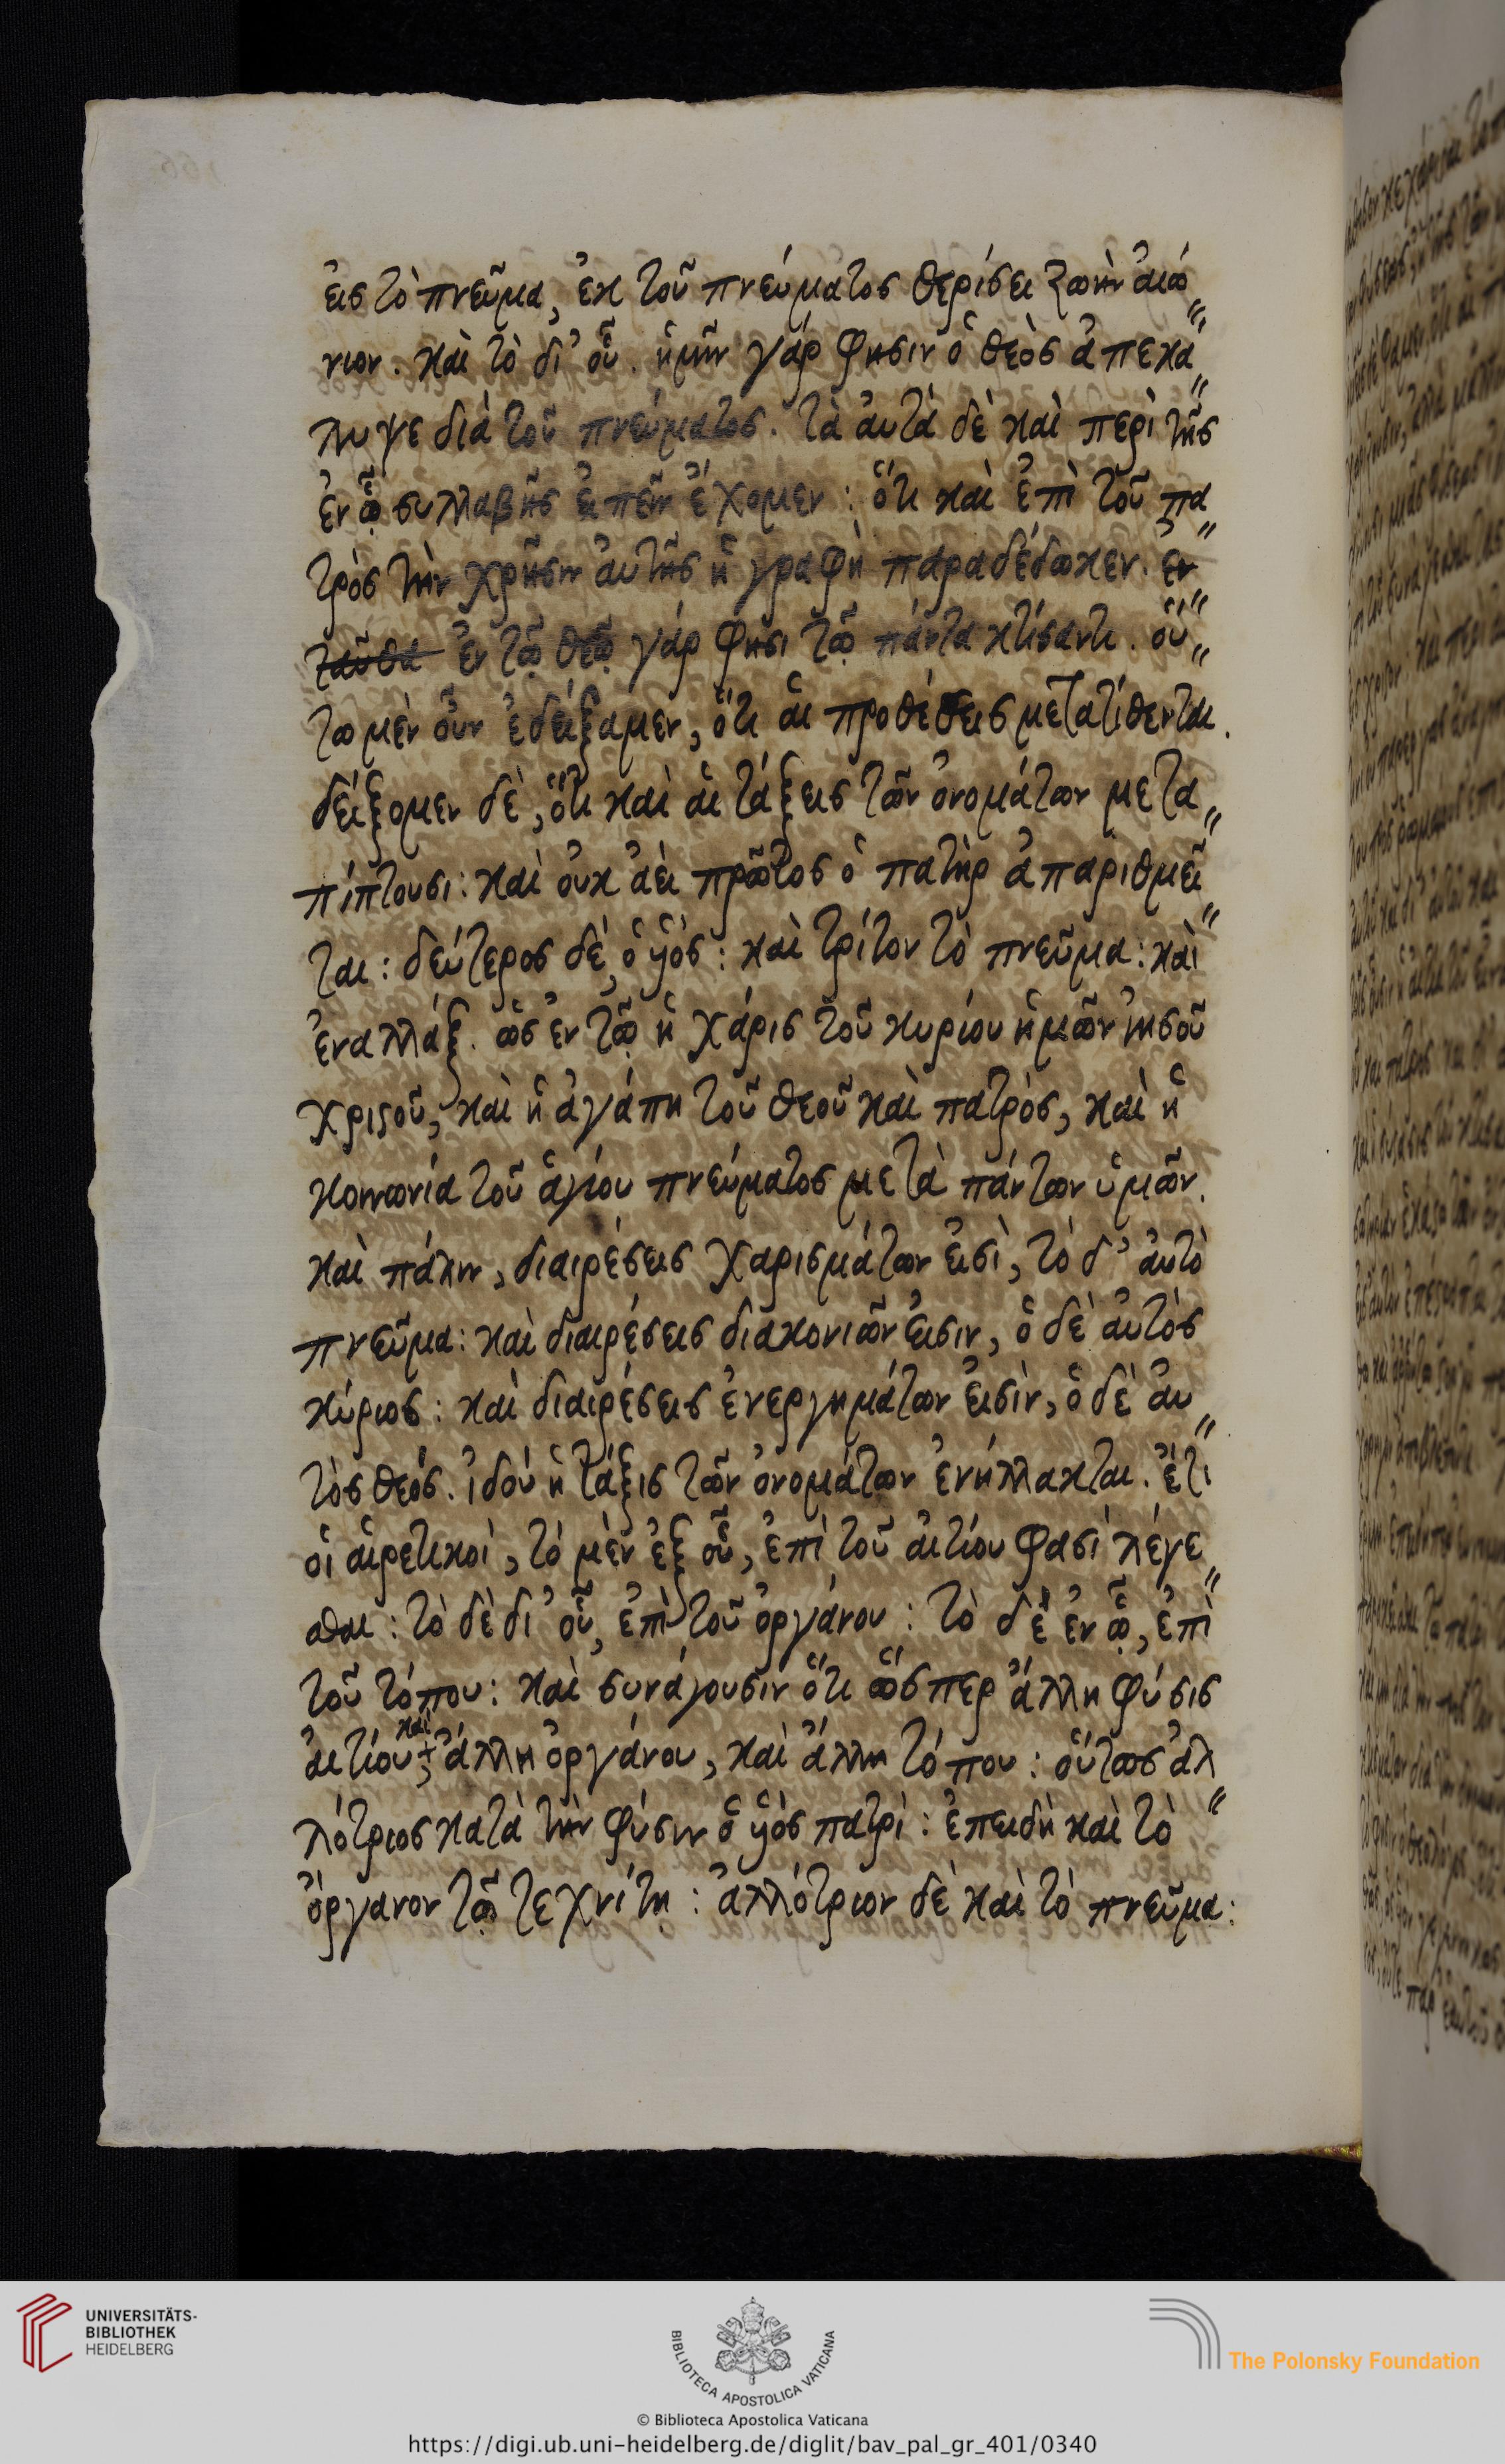 εἰς τὸ πνεῦμα, ἐκ τοῦ πνεύματος θερίσει ζωὴν ἀιώ
νιον. καὶ τὸ δι' οὗ. ἡμῖν γάρ φησιν ὁ θεὸς ἀπεκά
λυψε διὰ τοῦ πνεύματος. τὰ ἀυτὰ δὲ καὶ περὶ τῆς
ἐν ᾧ συλλαβῆς ἐιπεῖν ἔχομεν: ὅτι καὶ ἐπὶ τοῦ πα
τρὸς τὴν χρῆσιν ἀυτῆς ἡ γραφὴ παραδέδωκεν. ἐν
ταῦθα ἐν τῷ θεῷ γάρ φησι τῷ πάντα κτίσαντι. ὅυ
τω μὲν οὖν ἐδείξαμεν, ὅτι ἁι προθέσεις μετατίθενται.
δείξομεν δὲ, ὅτι καὶ ἁι τάξεις τῶν ὀνομάτων μετα
πίπτουσι: καὶ ὀυκ ἀεὶ πρῶτος ὁ πατὴρ ἀπαριθμεῖ
ται: δεύτερος δὲ, ὁ ὑιός: καὶ τρίτον τὸ πνεῦμα: καὶ
ἐναλλάξ. ὡς ἐν τῷ ἡ χάρις τοῦ κυρίου ἡμῶν ἰησοῦ
χριστοῦ, καὶ ἡ ἀγάπη τοῦ θεοῦ καὶ πατρὸς, καὶ ἡ
κοινωνία τοῦ ἁγίου πνεύματος μετὰ πάντων ὑμῶν.
καὶ πάλιν, διαιρέσεις χαρισμάτων ἐισὶ, τὸ δ' ἀυτὸ
πνεῦμα: καὶ διαιρέσεις διακονιῶν ἐισιν, ὁ δὲ ἀυτὸς
κύριος: καὶ διαιρέσεις ἐνεργημάτων ἐισὶν, ὁ δὲ ἀυ
τὸς θεός. ἰδοὺ ἡ τάξις τῶν ὀνομάτων ἐνήλλακται. ἔτι
οἱ ἁιρετικοὶ, τὸ μὲν ἐξ οὗ, ἐπὶ τοῦ ἀιτίου φασὶ λέγε
σθαι: τὸ δὲ δι' οὗ, ἐπὶ τοῦ ὀργάνου: τὸ δὲ ἐν ᾧ, ἐπὶ
τοῦ τόπου: καὶ συνάγουσιν ὅτι ὥσπερ ἄλλη φύσις
ἀιτίου, καὶ ἄλλη ὀργάνου, καὶ ἄλλη τόπου: ὅυτως ἀλ
λότριος κατὰ τὴν φύσιν ὁ ὑιὸς πατρὶ: ἐπειδὴ καὶ τὸ
ὄργανον τῷ τεχνίτῃ: ἀλλότριον δὲ καὶ τὸ πνεῦμα:
UNIVERSITÄTS-
BIBLIOTHEK
HEIDELBERG
BIBLIOTECA APOSTOLICA VATICANA
The Polonsky Foundation
© Biblioteca Apostolica Vaticana
https://digi.ub.uni-heidelberg.de/diglit/bav_pal_gr_401/0340